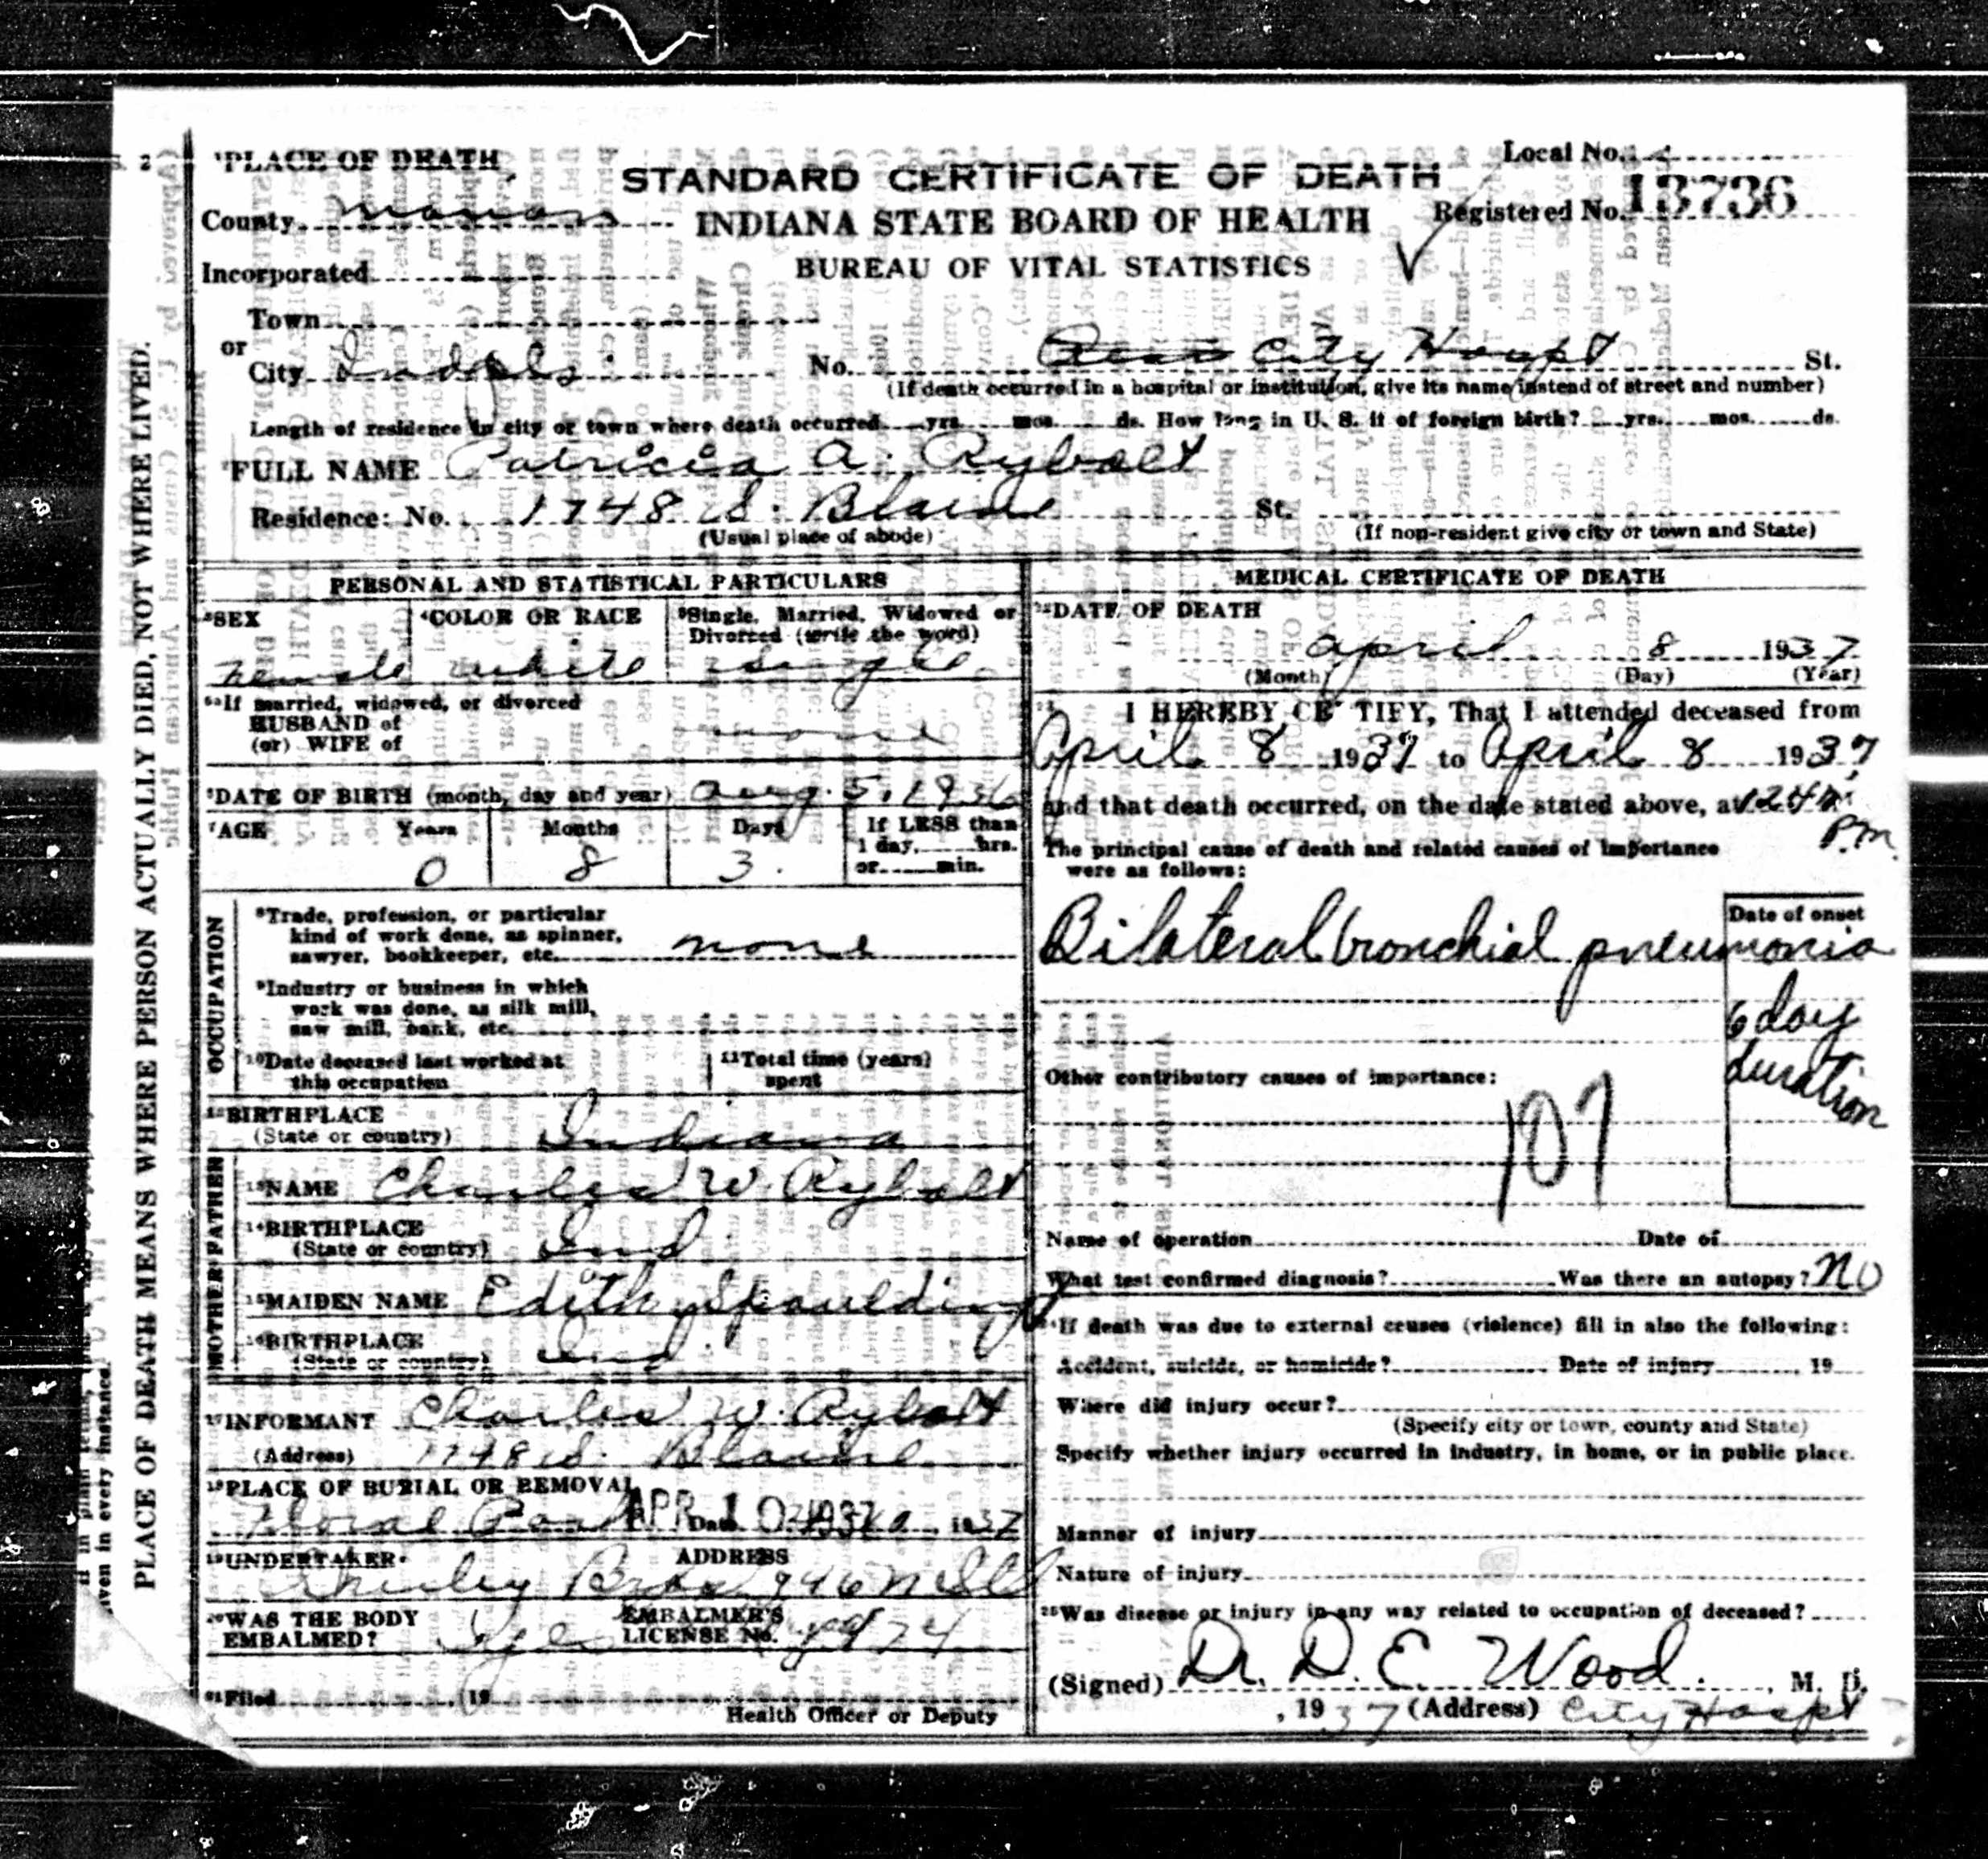 PLACE OF DEATH MEANS WHERE PERSON ACTUALLY DIED, NOT WHERE LIVED.
given in every instance.
Local No.
Registered No. 13736
¹PLACE OF DEATH
STANDARD CERTIFICATE OF DEATH
County Marion
INDIANA STATE BOARD OF HEALTH
Incorporated
BUREAU OF VITAL STATISTICS
Town
or
City Indpls No. City Hospt St.
(If death occurred in a hospital or institution, give its name instead of street and number)
Length of residence in city or town where death occurred yrs. mos. ds. How long in U. S. if of foreign birth? yrs. mos. ds.
²FULL NAME Patricia A. Rybolt
Residence: No. 1748 S. Blaine St.
(Usual place of abode) (If non-resident give city or town and State)
PERSONAL AND STATISTICAL PARTICULARS
³SEX ⁴COLOR OR RACE ⁵Single, Married, Widowed or Divorced (write the word)
Female white single
If married, widowed, or divorced
HUSBAND of
(or) WIFE of none
⁶DATE OF BIRTH (month, day and year) Aug. 5, 1936
⁷AGE Years Months Days If LESS than
1 day, hrs.
or min.
0 8 3
OCCUPATION
⁸Trade, profession, or particular
kind of work done, as spinner,
sawyer, bookkeeper, etc. none
⁹Industry or business in which
work was done, as silk mill,
saw mill, bank, etc.
¹⁰Date deceased last worked at
this occupation
¹¹Total time (years)
spent
¹²BIRTHPLACE
(State or country) Indiana
FATHER
¹³NAME Charles W. Rybolt
¹⁴BIRTHPLACE
(State or country) Ind
MOTHER
¹⁵MAIDEN NAME Edith Spaulding
¹⁶BIRTHPLACE
(State or country) Ind.
¹⁷INFORMANT Charles W. Rybolt
(Address) 1748 S. Blaine
¹⁸PLACE OF BURIAL OR REMOVAL
Floral Park APR 10 1937 Date 1937
¹⁹UNDERTAKER ADDRESS
Shirley Bros 946 N Ill
²⁰WAS THE BODY
EMBALMED? Yes
EMBALMER'S
LICENSE No.
²¹Filed 19
Health Officer or Deputy
MEDICAL CERTIFICATE OF DEATH
²²DATE OF DEATH
April 8 1937
(Month) (Day) (Year)
I HEREBY CERTIFY, That I attended deceased from
April 8 1937 to April 8 1937
and that death occurred, on the date stated above, at
P.m.
The principal cause of death and related causes of importance
were as follows:
Date of onset
Bilateral bronchial pneumonia
6 day
duration
Other contributory causes of importance:
107
Name of operation Date of
What test confirmed diagnosis? Was there an autopsy? No
If death was due to external causes (violence) fill in also the following:
Accident, suicide, or homicide? Date of injury 19
Where did injury occur?
(Specify city or town, county and State)
Specify whether injury occurred in industry, in home, or in public place.
Manner of injury
Nature of injury
²⁵Was disease or injury in any way related to occupation of deceased?
(Signed) Dr. D. E. Wood, M. D.
, 1937 (Address) City Hospt